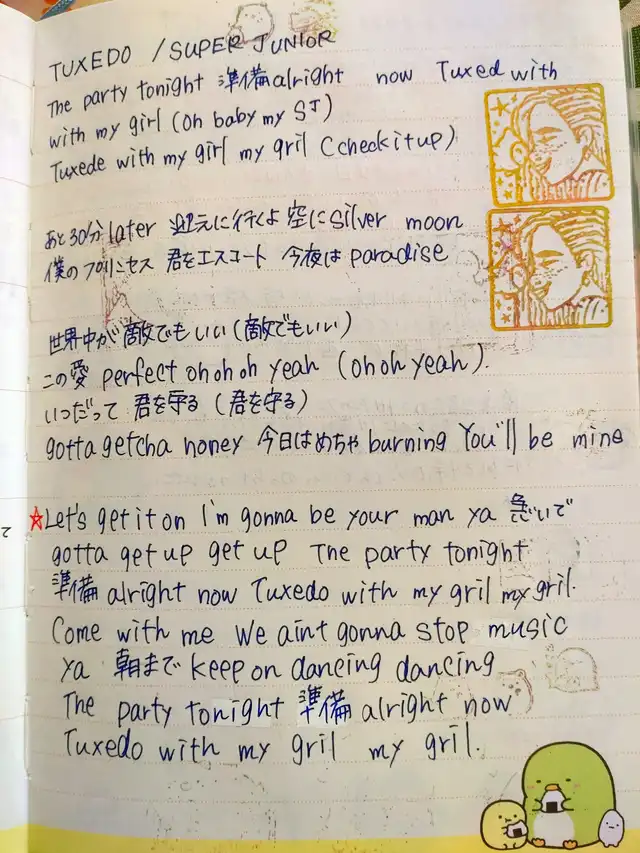 TUXEDO / SUPER JUNIOR
The party tonight 準備alright now Tuxed with
with my girl (Oh baby my SJ)
Tuxede with my girl my gril (checkitup)
あと30分later 迎えに行くよ 空にsilver moon
僕のプリンセス 君をエスコート 今夜は paradise
世界中が敵でもいい(敵でもいい)
この愛 perfect oh oh oh yeah (oh oh yeah).
いつだって 君を守る (君を守る)
gotta getcha honey 今日はめちゃ burning You'll be mine
☆Let's get it on I'm gonna be your man ya 急いで
gotta get up get up The party tonight
準備 alright now Tuxedo with my gril my gril.
Come with me We aint gonna stop music
Ya 朝まで keep on dancing dancing
The party tonight 準備 alright now
Tuxedo with my gril my gril.